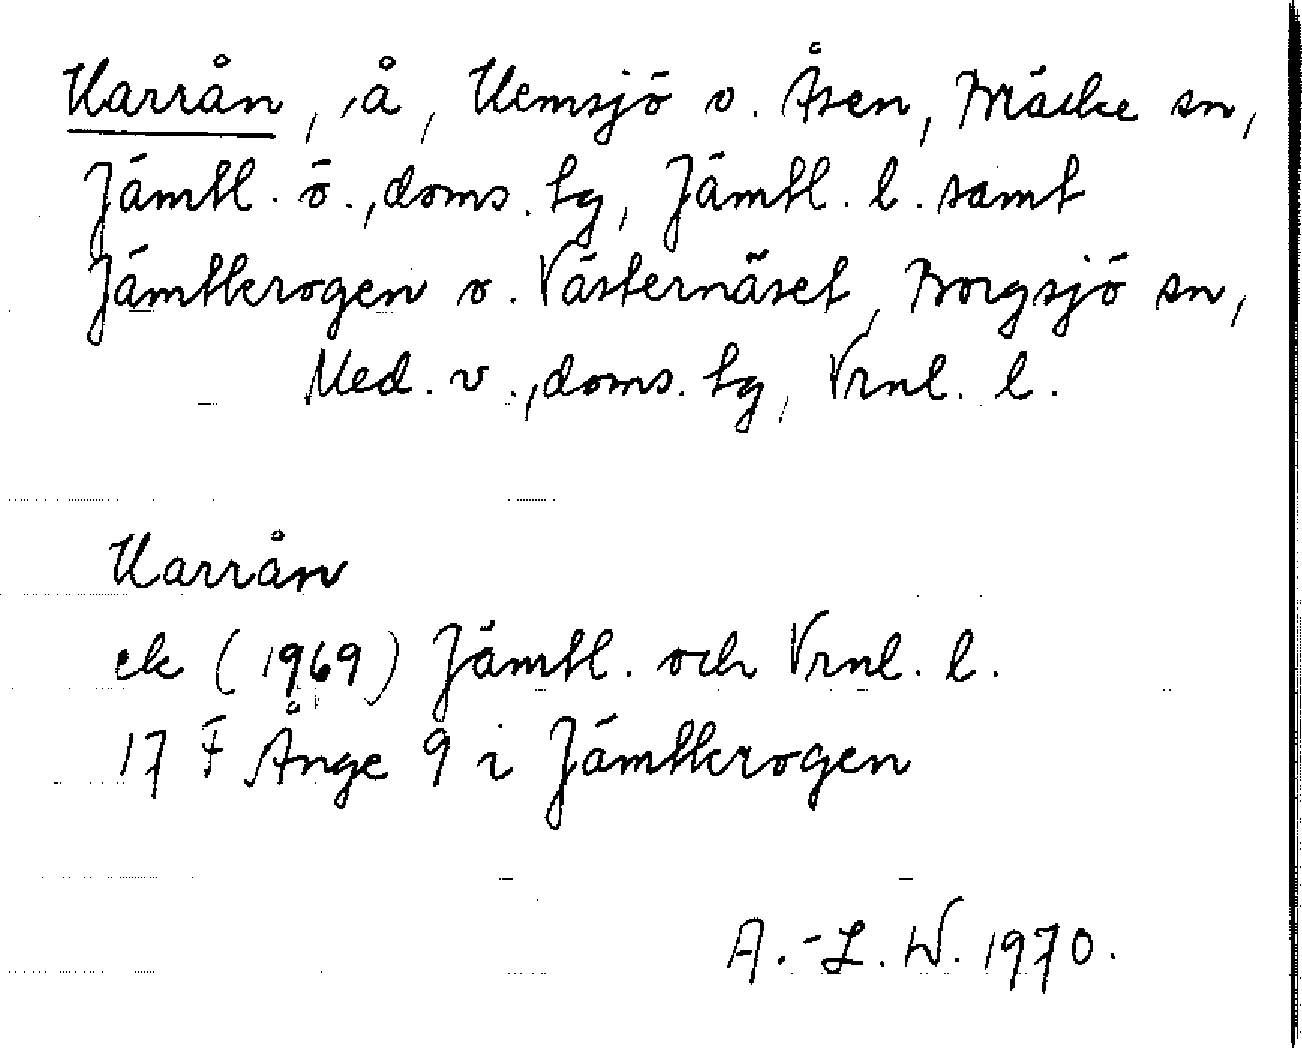 Harrån, å, Hemsjö o. Åsen, Bräcke sn,
Jämtl. ö., doms. tg, Jämtl. l. samt
Jämtkrogen o. Västernäset, Borgsjö sn,
Med. v., doms. tg, Vrnl. l.
Harrån
ek (1969) Jämtl. och Vrnl. l.
17 F Ånge 9 i Jämtkrogen
A.-L. W. 1970.